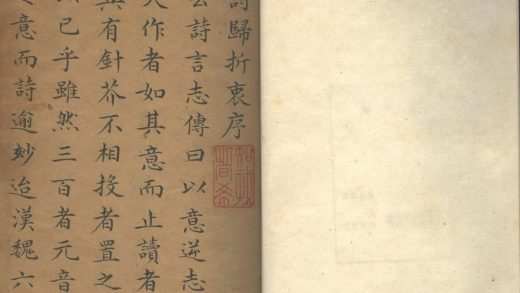 詩歸折衷序
詩言志傳曰以意逆志
作者如其意而止讀者
有針芥不相投者置之
已乎雖然三百者元音
意而詩逾妙迨漢魏六